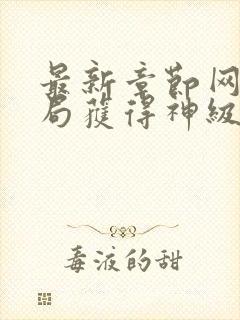 最新章节网
局获得神级
毒液的甜